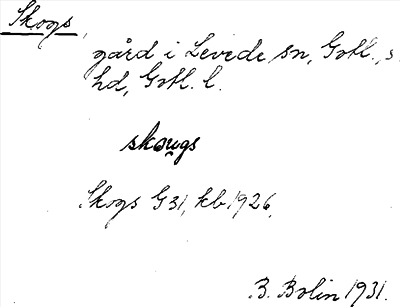 Skogs,
gård i Levede sn, Gotl., s.
hd, Gotl. l.
skougs
Skogs G31, kb 1926.
B. Bolin 1931.